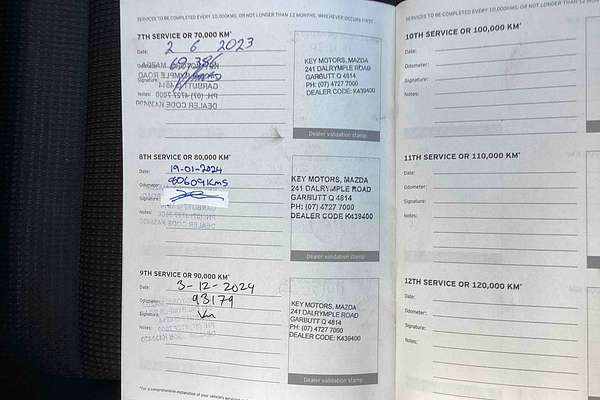 SERVICES TO BE COMPLETED EVERY 10,000KMS, OR NOT LONGER THAN 12 MONTHS, WHICHEVER OCCURS FIRST
7TH SERVICE OR 70,000 KM*
Date: 2 6 2023
Odometer:
Signature:
Notes:
KEY MOTORS, MAZDA
241 DALRYMPLE ROAD
GARBUTT Q 4814
PH: (07) 4727 7000
DEALER CODE: K439400
Dealer validation stamp
8TH SERVICE OR 80,000 KM*
Date: 19-01-2024
Odometer: 80609kms
Signature:
Notes:
KEY MOTORS, MAZDA
241 DALRYMPLE ROAD
GARBUTT Q 4814
PH: (07) 4727 7000
DEALER CODE K439400
Dealer validation stamp
9TH SERVICE OR 90,000 KM*
Date: 3-12-2024
Odometer: 93179
Signature:
Notes:
KEY MOTORS, MAZDA
241 DALRYMPLE ROAD
GARBUTT Q 4814
PH: (07) 4727 7000
DEALER CODE: K439400
Dealer validation stamp
*For a comprehensive explanation of your vehicle's
SERVICES TO BE COMPLETED EVERY 10,000KMS, OR NOT LONGER THAN 12 MONTHS
10TH SERVICE OR 100,000 KM*
Date:
Odometer:
Signature:
Notes:
11TH SERVICE OR 110,000 KM*
Date:
Odometer:
Signature:
Notes:
12TH SERVICE OR 120,000 KM*
Date:
Odometer:
Signature:
Notes: